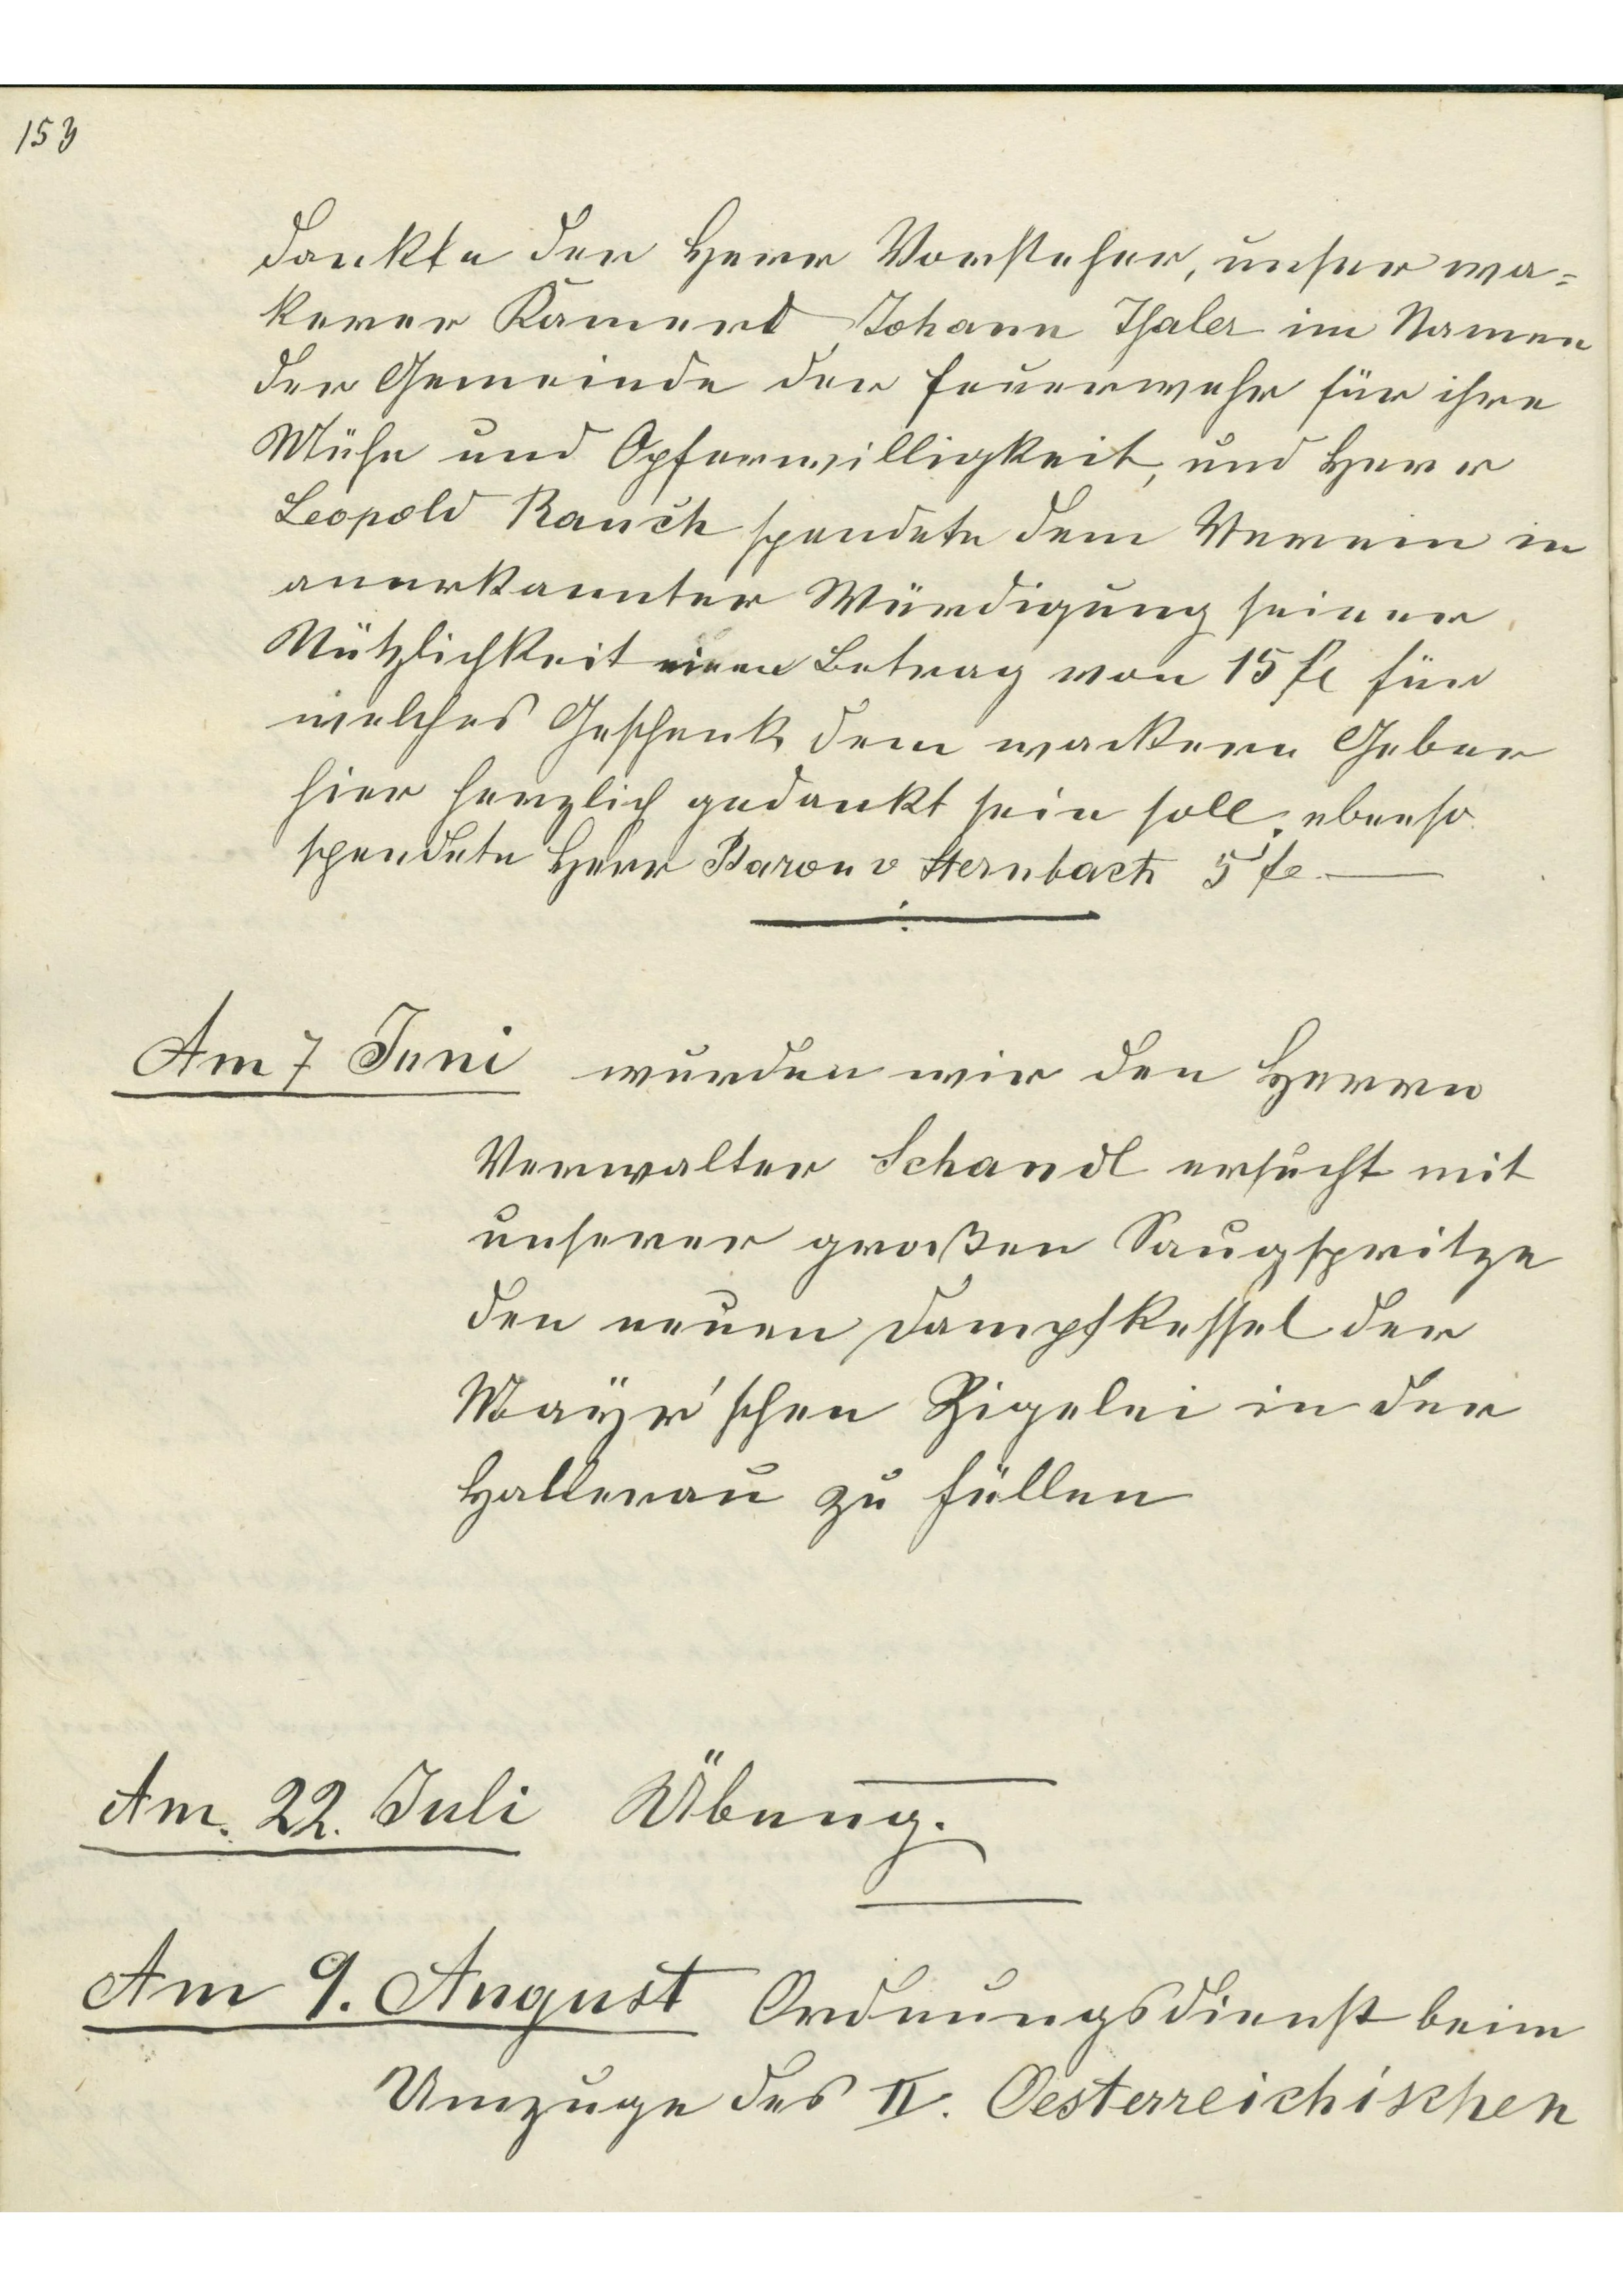 153
dankte der Herr Vorsteher, unser wa=
kerer Kamerd Johann Thaler im Namen
der Gemeinde der Feuerwehr für ihre
Mühe und Opferwilligkeit, und Herr
Leopold Rauch spendete dem Verein in
anerkannter Würdigung seiner
Nützlichkeit einen Betrag von 15 fl für
welches Geschenk dem wackern Geber
hier herzlich gedankt sein soll, ebenso
spendete Herr Baron v Sternbach 5 fl.
Am 7 Juni wurden wir den Herrn
Verwalter Schandl ersucht mit
unserer großen Saugspritze
den neuen Dampfkessel der
Mayr'schen Zigelei in der
Hallerau zu füllen
Am. 22. Juli Übung.
Am 9. August Ordnungsdienst beim
Umzuge des II. Oesterreichischen